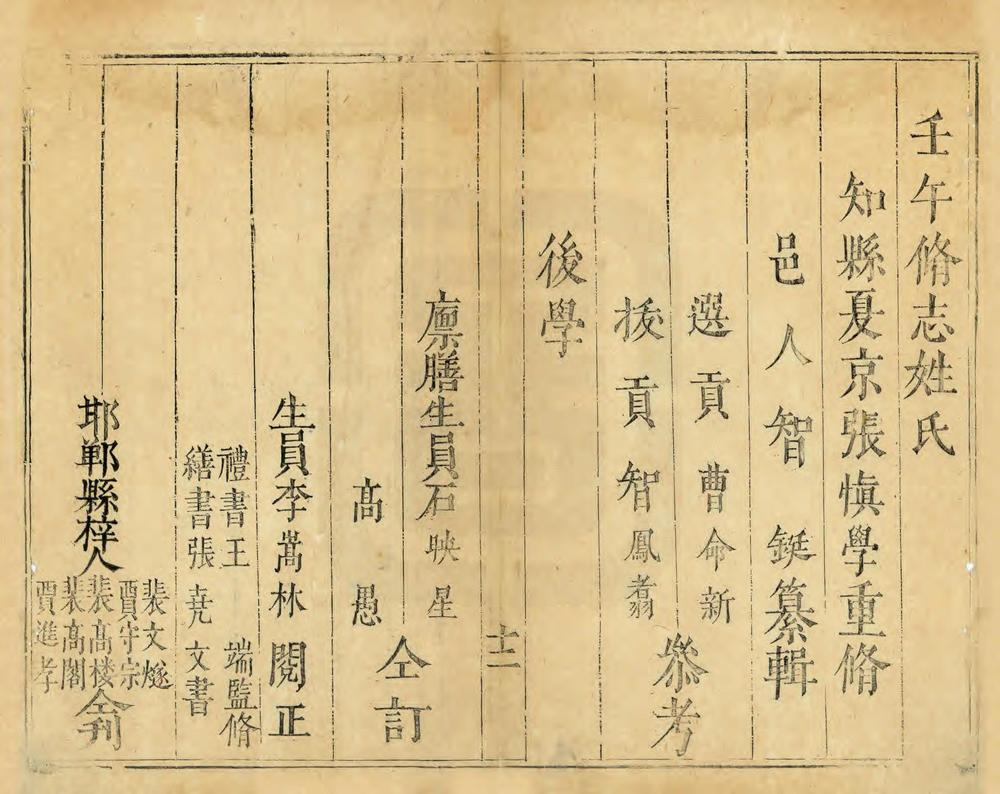 壬午脩志姓氏
知縣夏京張慎學重脩
邑人智鋌纂輯
選貢曹命新
拔貢智鳳翥
叅考
後學
十二
廩膳生員石映星
高愚
仝訂
生員李嵩林閱正
禮書王端監脩
繕書張堯文書
邯鄲縣梓人
裴文燧
賈守宗
裴高楼
裴高閣
賈進孝
仝刊